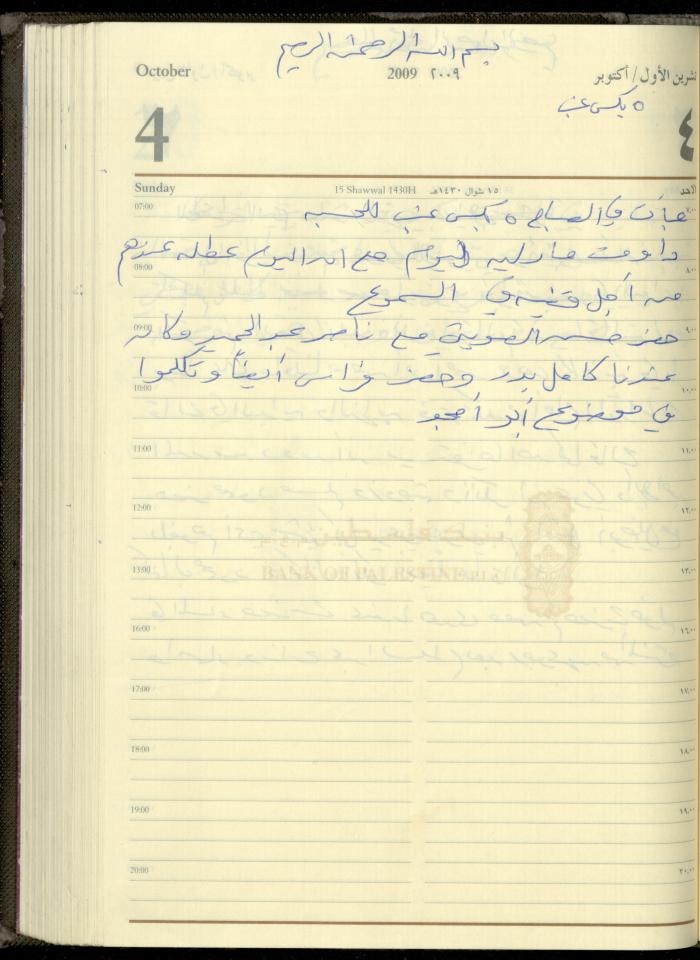 بسم الله الرحمن الرحيم
October
2009 ٢٠٠٩
تشرين الأول / أكتوبر
4
٥ بكس عنب
٤
Sunday
15 Shawwal 1430H
١٥ شوال ١٤٣٠هـ
الاحد
07:00
عبأت في الصباح ٥ بكس عنب للحسبه
داومت اليوم مع انه اليوم عطله عندهم
08:00 ٨:٠٠
من أجل في السموع
09:00 ٩:٠٠
حضر حسن مع ناصر عبد الحميد وكان
عندنا كامل بدر وحضر فراس أيضاً وتكلموا
10:00 ١٠:٠٠
في موضوع أبو أمجد
11:00 ١١:٠٠
12:00 ١٢:٠٠
BANK OF PALESTINE
13:00 ١٣:٠٠
16:00 ١٤:٠٠
17:00 ١٧:٠٠
18:00 ١٨:٠٠
19:00 ١٩:٠٠
20:00 ٢٠:٠٠